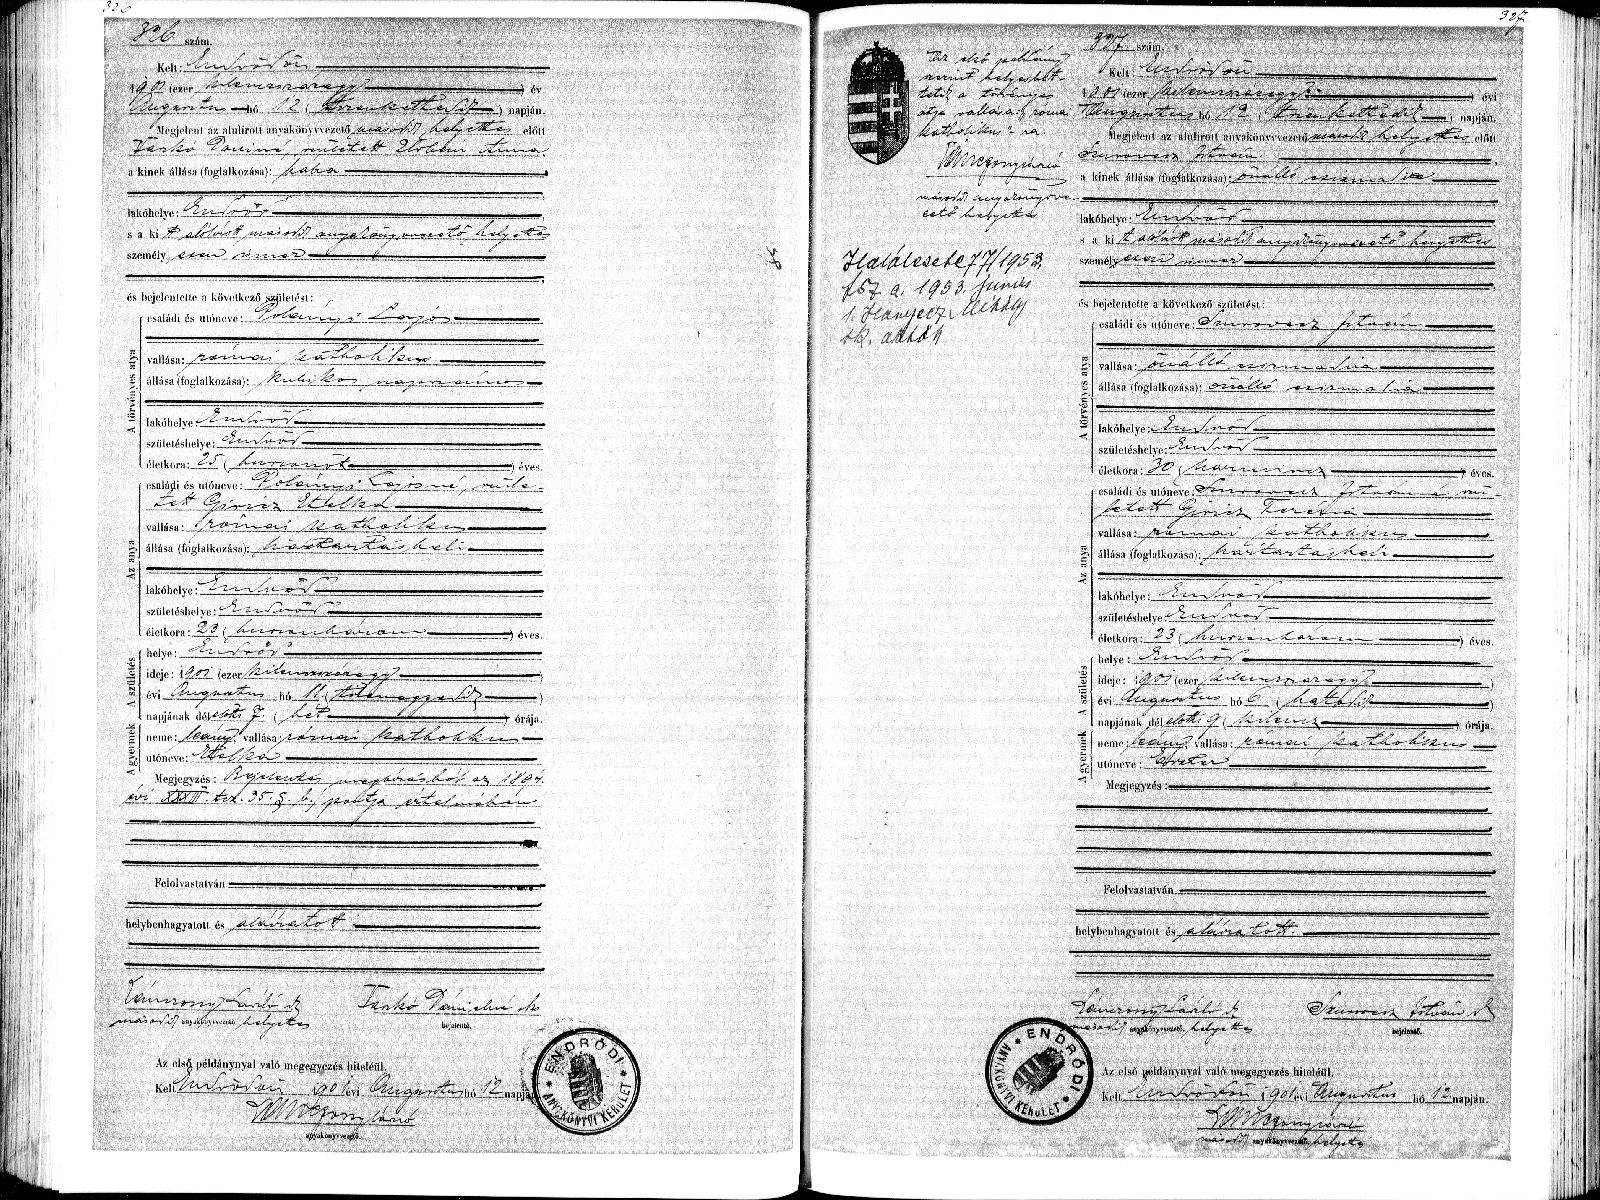 326
326 szám.
Kelt: Endrődön
1901 (ezer kilencszázegy) év
Augusztus hó 12 (tizenkettedik) napján.
Megjelent az alulirott anyakönyvvezető másod helyettes előtt
Tarkó Dániné, született
a kinek állása (foglalkozása): bába
lakóhelye: Endrőd
s a ki t alólirott másod anyakönyvvezető helyettes
személyesen ismer
és bejelentette a következő születést:
A törvényes atya
családi és utóneve: Polányi Lajos
vallása: római katholikus
állása (foglalkozása): kubikos napszámos
lakóhelye: Endrőd
születéshelye: Endrőd
életkora: 25 (huszonöt) éves.
Az anya
családi és utóneve: Polányi Lajosné, szüle-
tett Giricz Etelka
vallása: római katholikus
állása (foglalkozása): háztartásbeli
lakóhelye: Endrőd
születéshelye: Endrőd
életkora: 23 (huszonhárom) éves.
A születés
helye: Endrőd
ideje: 1901 (ezer kilencszázegy)
évi Augusztus hó 11 (tizenegyedik)
napjának délelőtti 7 (hét) órája.
A gyermek
neme: leány vallása: római katholikus
utóneve: Etelka
Megjegyzés: Bejelentés megbízásból az 1894
évi XXXIII. tcz. 35. § b) pontja értelmében
Felolvastatván
helybenhagyatott és aláiratott
Tarkó Dánielné
másod anyakönyvvezető helyettes
bejelentő.
Az első példánynyal való megegyezés hiteléül.
Kelt Endrődön 1901 évi Augusztus hó 12 napján
anyakönyvvezető.
ENDRŐDI ANYAKÖNYVI KERÜLET
327
Az első példány
szerint helyesbít-
tetik a törvényes
atya vallása: "római
katholikus"-ra.
másod anyakönyvve-
zető helyettes
Halálesete 77/1953.
fsz a. 1953. június
1. Hanyecz Mihály
ok. aláh
327 szám.
Kelt: Endrődön
1901 (ezer kilencszázegy) évi
Augusztus hó 12 (tizenkettedik) napján.
Megjelent az alulirott anyakönyvvezető másod helyettes előtt
Szurovecz István
a kinek állása (foglalkozása): önálló csizmadia
lakóhelye: Endrőd
s a ki t alólirott másod anyakönyvvezető helyettes
személyesen ismer
és bejelentette a következő születést:
A törvényes atya
családi és utóneve: Szurovecz István
vallása: önálló csizmadia
állása (foglalkozása): önálló csizmadia
lakóhelye: Endrőd
születéshelye: Endrőd
életkora: 30 (harmincz) éves.
Az anya
családi és utóneve: Szurovecz Istvánné, szü-
letett Giricz Terézia
vallása: római katholikus
állása (foglalkozása): háztartásbeli
lakóhelye: Endrőd
születéshelye: Endrőd
életkora: 23 (huszonhárom) éves.
A születés
helye: Endrőd
ideje: 1901 (ezer kilencszázegy)
évi Augusztus hó 6 (hatodik)
napjának délelőtti 9 (kilencz) órája.
A gyermek
neme: leány vallása: római katholikus
utóneve: Eszter
Megjegyzés:
Felolvastatván
helybenhagyatott és aláiratott.
Szurovecz István
másod anyakönyvvezető. helyettes
bejelentő.
Az első példánynyal való megegyezés hiteléül.
Kelt Endrődön 1901 évi Augusztus hó 12 napján.
másod anyakönyvvezető. helyettes
ENDRŐDI ANYAKÖNYVI KERÜLET